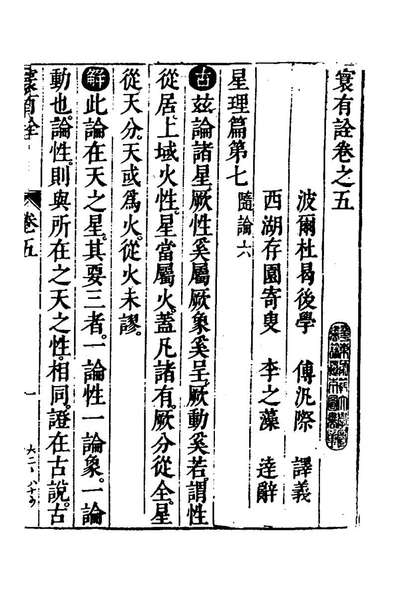 寰有詮卷之五
波爾杜曷後學　傅汎際　譯義
西湖存園寄叟　李之藻　達辭
星理篇第七 隨論六
古 玆論諸星厥性奚屬厥象奚呈厥動奚若謂性
從居上域火性星當屬火蓋凡諸有厥分從全星
從天分天或為火從火未謬
解 此論在天之星其要三者一論性一論象一論
動也論性則與所在之天之性相同證在古說古
寰有詮
卷五
一